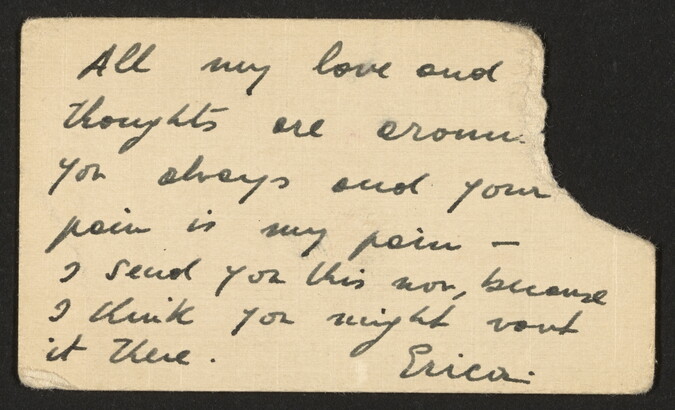 All my love and
thoughts are aroun
you always and your
pain is my pain —
I send you this now, because
I think you might want
it there.
Erica.